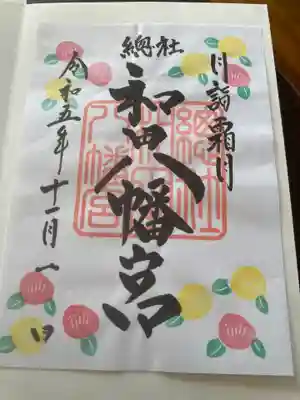 月詣 霜月
總社
和田八幡宮
令和五年十一月一日
總社和田八幡宮